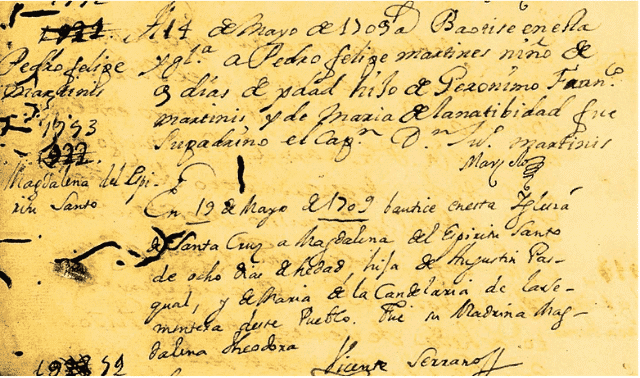 A 14 de Mayo de 1709 a Bautise en esta
Pedro felipe
martinis
ygl.ª a Pedro felipe martines niño de
9 dias de edad hijo de Geronimo Fran.co
martinis y de Maria de la natibidad fue
Su padrino el Cap.n D.n Ju.o martinis
1793
922.
Magdalena del Spi-
ritu Santo
En 19 de Mayo de 1709 bautice en esta Iglecia
de Santa Cruz a Magdalena del Espiritu Santo
de ocho dias de hedad, hija de Augustin Pas-
qual, y de Maria de la Candelaria de la Se-
mentera deste Pueblo. Fue su Madrina Mag-
dalena Theodora
Vicente Serrano